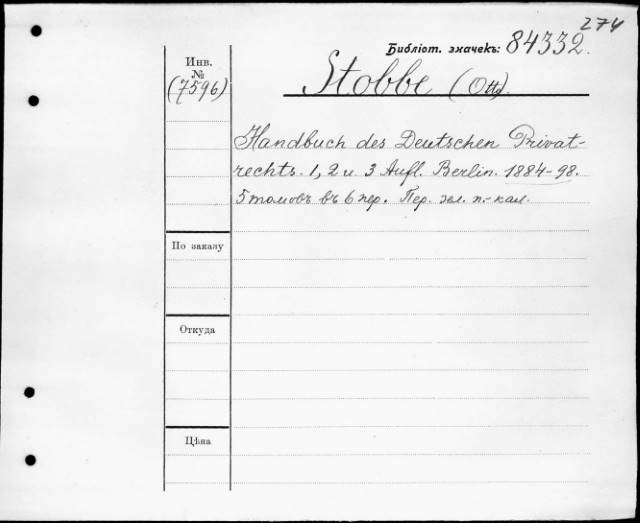 274
Библіот. значекъ: 84332.
Инв.
№
(7596)
Stobbe (Otto).
Handbuch des Deutschen Privat-
rechts. 1, 2 u 3 Aufl. Berlin. 1884-98.
5 томовъ въ 6 пер. Пер. зел. п.-кал.
По заказу
Откуда
Цѣна